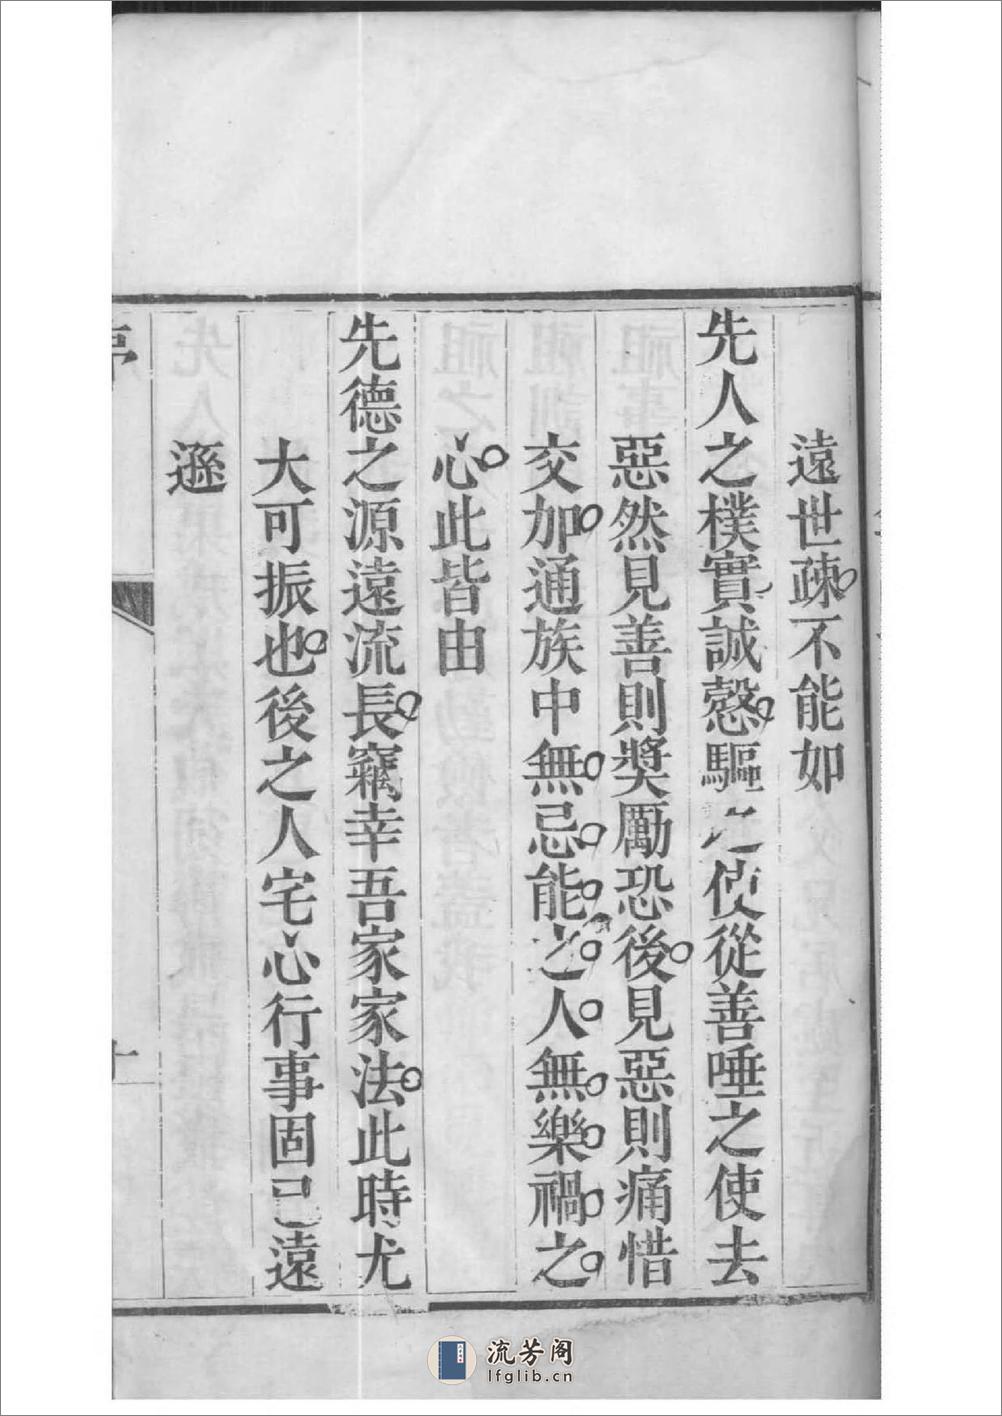 遠世疎不能如
先人之樸實誠慤驅之使從善唾之使去
惡然見善則獎勵恐後見惡則痛惜
交加通族中無忌能之人無樂禍之
心此皆由
先德之源遠流長竊幸吾家家法此時尤
大可振也後之人宅心行事固已遠
遜
流芳阁
lfglib.cn